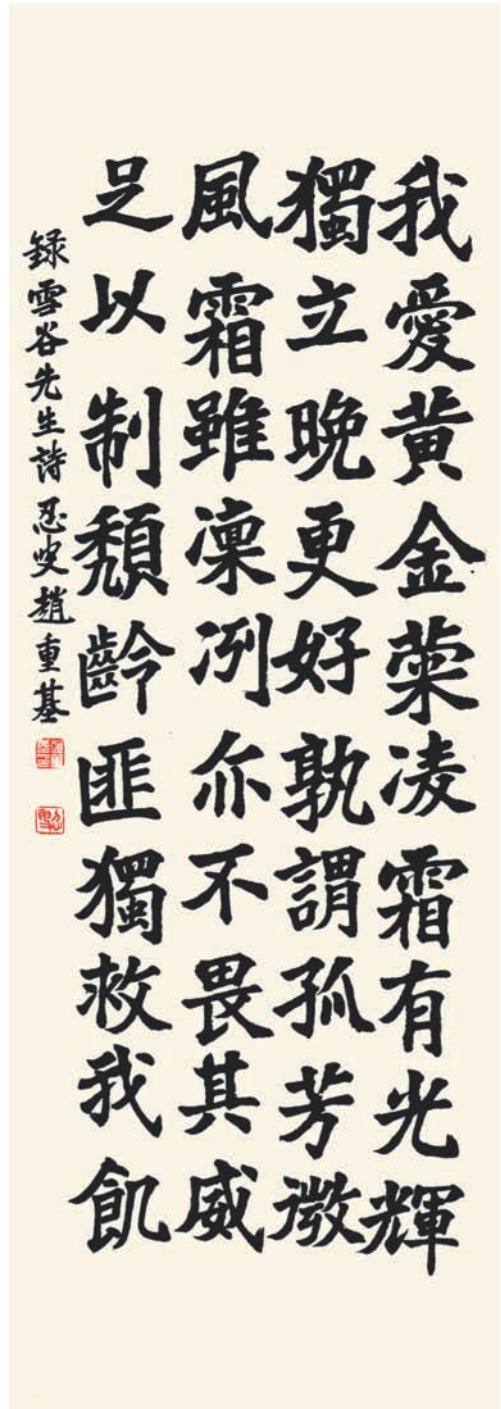 我愛黃金蘂凌霜有光輝
獨立晩更好孰謂孤芳微
風霜雖凜冽亦不畏其威
足以制頹齡匪獨救我飢
錄雪谷先生詩 忍叟趙重基